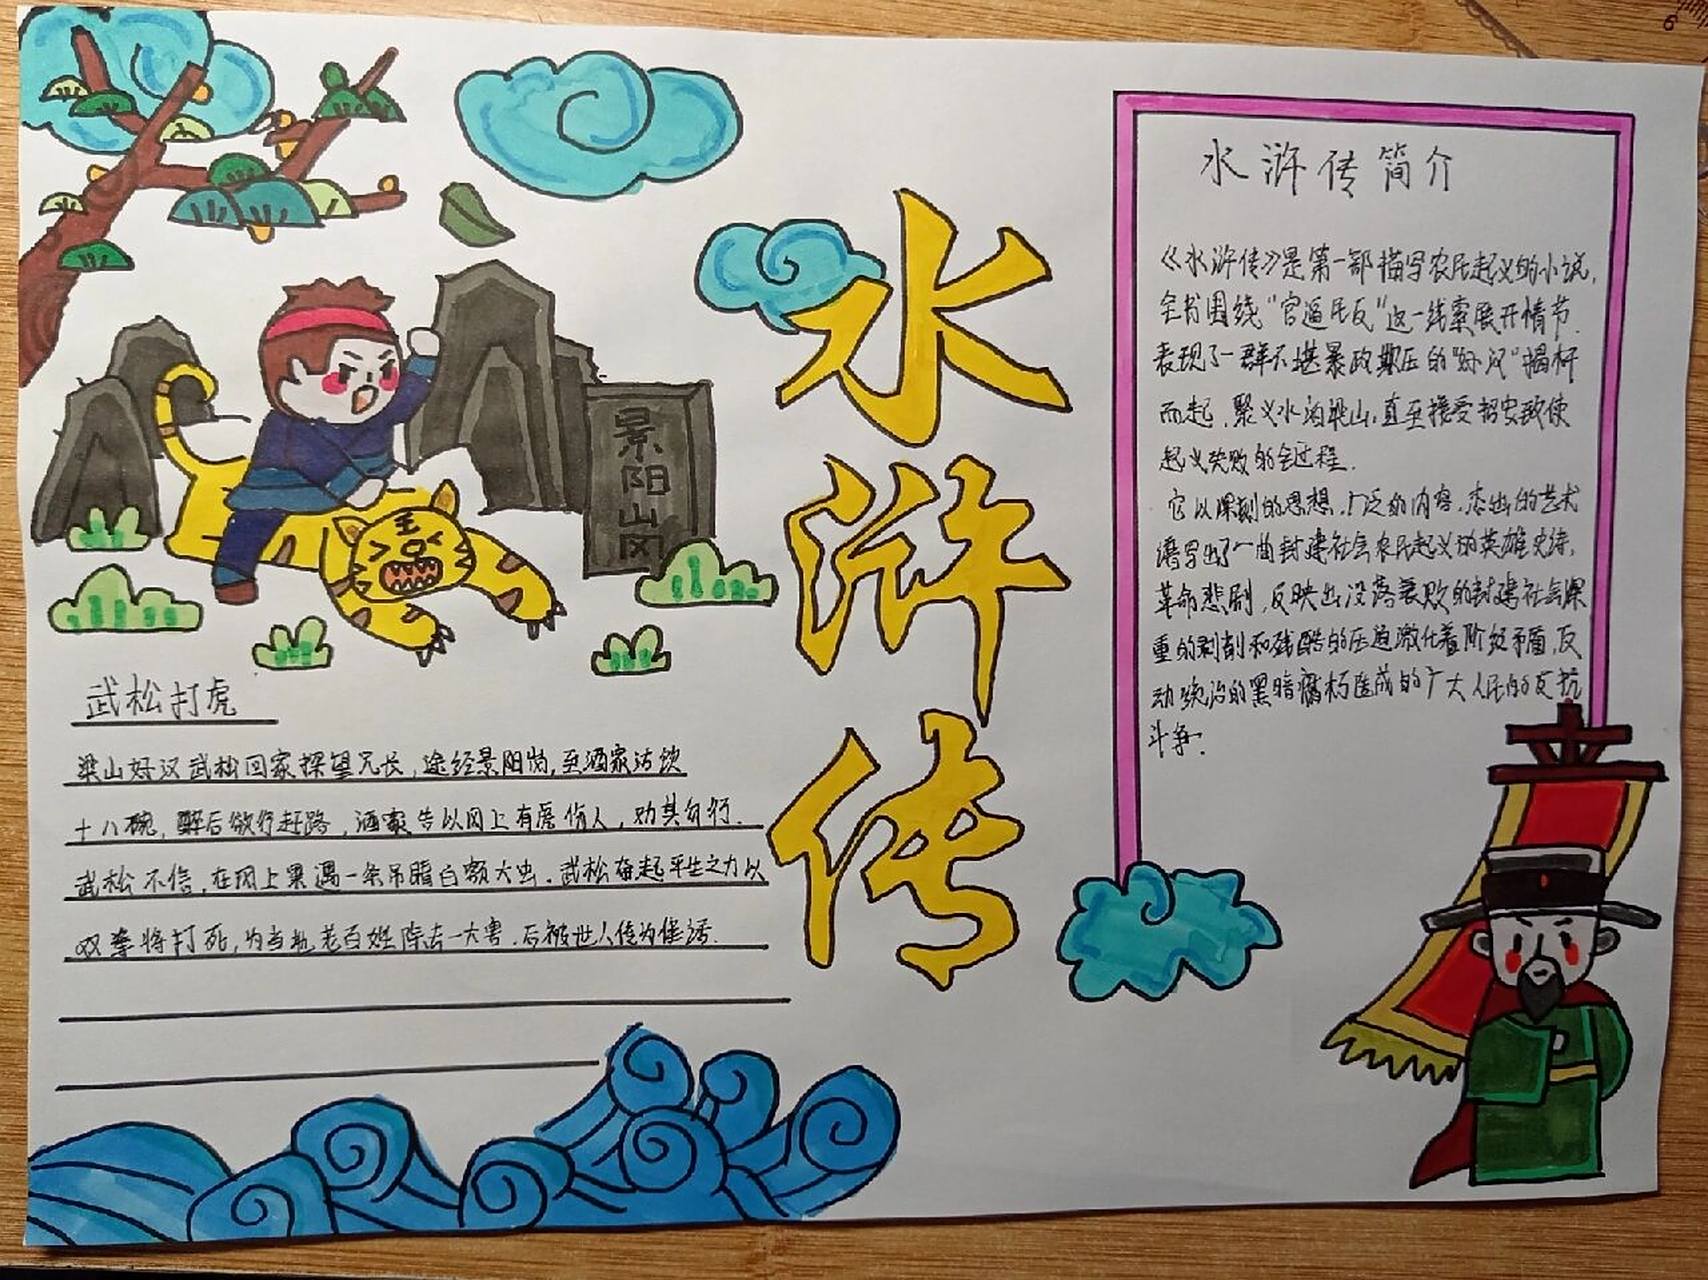 水浒传
景阳山冈
王
武松打虎
梁山好汉武松回家探望兄长，途经景阳岗，至酒家沽饮
十八碗，醉后欲行赶路，酒家告以冈上有虎伤人，劝其勿行.
武松不信，在冈上果遇一条吊睛白额大虫.武松奋起平生之力以
双拳将打死，为当地老百姓除去一大害.后被世人传为催话.
水浒传简介
《水浒传》是第一部描写农民起义的小说，
全书围绕"官逼民反"这一线索展开情节.
表现了一群不堪暴政欺压的"好汉"揭杆
而起，聚义水泊梁山，直至接受招安致使
起义失败的全过程.
它以深刻的思想，广泛的内容，杰出的艺术
谱写出了一曲封建社会农民起义的英雄史诗，
革命悲剧，反映出没落衰败的封建社会深
重的剥削和残酷的压迫激化着阶级矛盾，反
动统治的黑暗腐朽造成的广大人民的反抗
斗争.
6